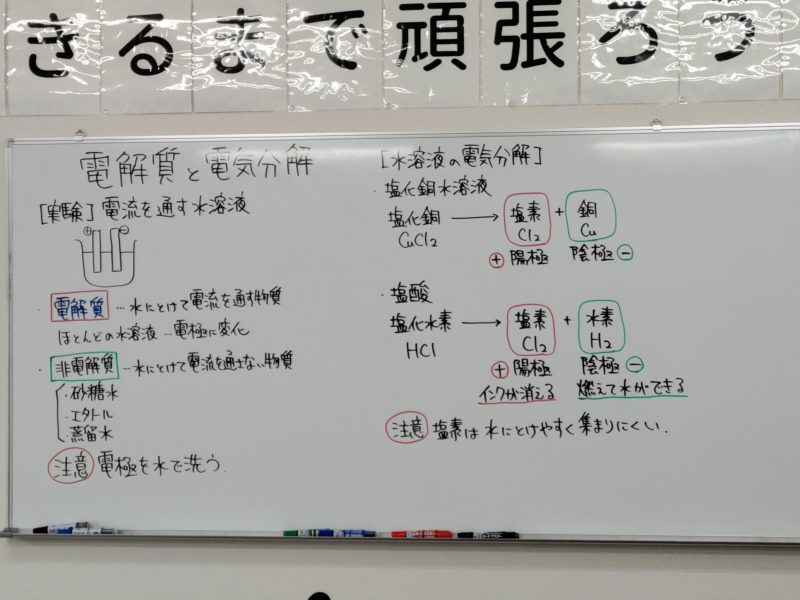 きるまで頑張ろう
電解質と電気分解
[実験]電流を通す水溶液
⊕ ⊖
・電解質…水にとけて電流を通す物質
ほとんどの水溶液…電極に変化
・非電解質…水にとけて電流を通さない物質
・砂糖水
・エタノール
・蒸留水
注意 電極を水で洗う.
[水溶液の電気分解]
・塩化銅水溶液
塩化銅 → 塩素 + 銅
CuCl2 Cl2 Cu
⊕陽極 陰極⊖
・塩酸
塩化水素 → 塩素 + 水素
HCl Cl2 H2
⊕陽極 陰極⊖
インクが消える 燃えて水ができる
注意 塩素は水にとけやすく集まりにくい.